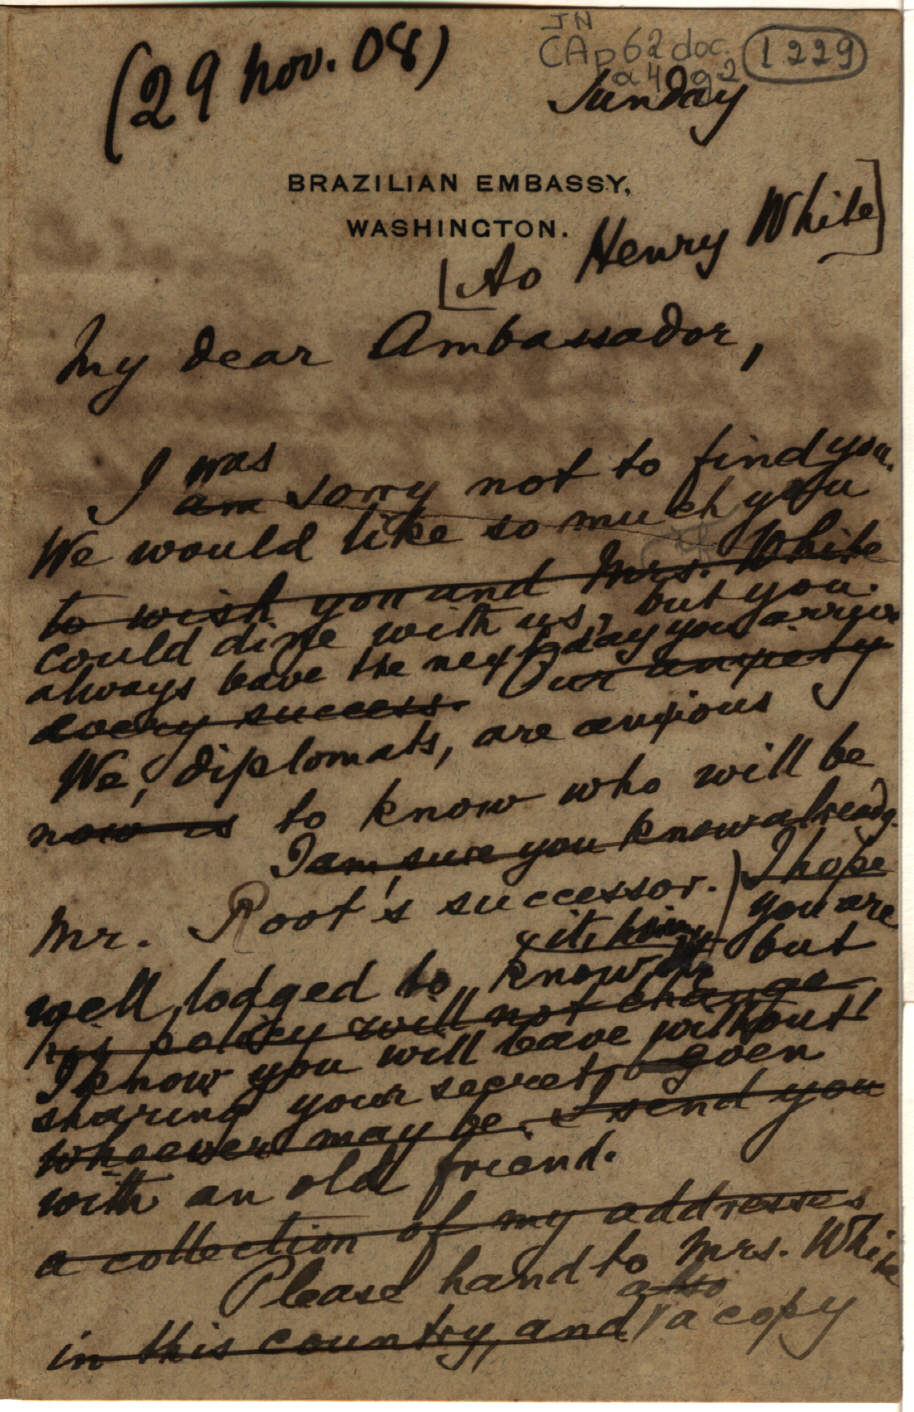 (29 Nov. 08)
JN
CAp62 doc.
1229
Sunday
BRAZILIAN EMBASSY,
WASHINGTON.
[Ao Henry White]
My dear Ambassador,
was
I am sorry not to find you.
We would like so much you
to wish you and Mrs. White
could dine with us, but you
always leave the next day you arrive.
every success. Our anxiety
We, diplomats, are anxious
now is to know who will be
I am sure you know already.
Mr. Root's successor. ) I hope
you are
well lodged to know it, but
his policy will not change
I know you will leave without
sharing your secret, even
whoever may be. I send you
with an old friend.
a collection of my addresses
Please hand to Mrs. White
also
in this country, and a copy